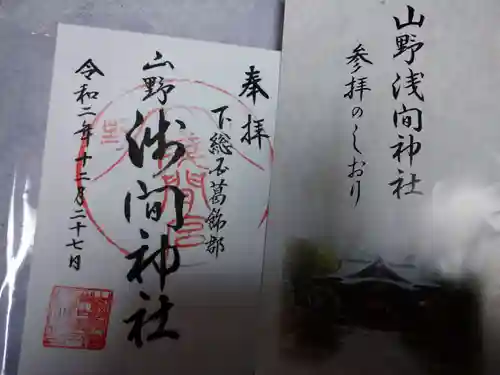 山野浅間神社
参拝のしおり
奉拝
下総国葛飾郡
山野
浅間神社
令和二年十二月二十七日